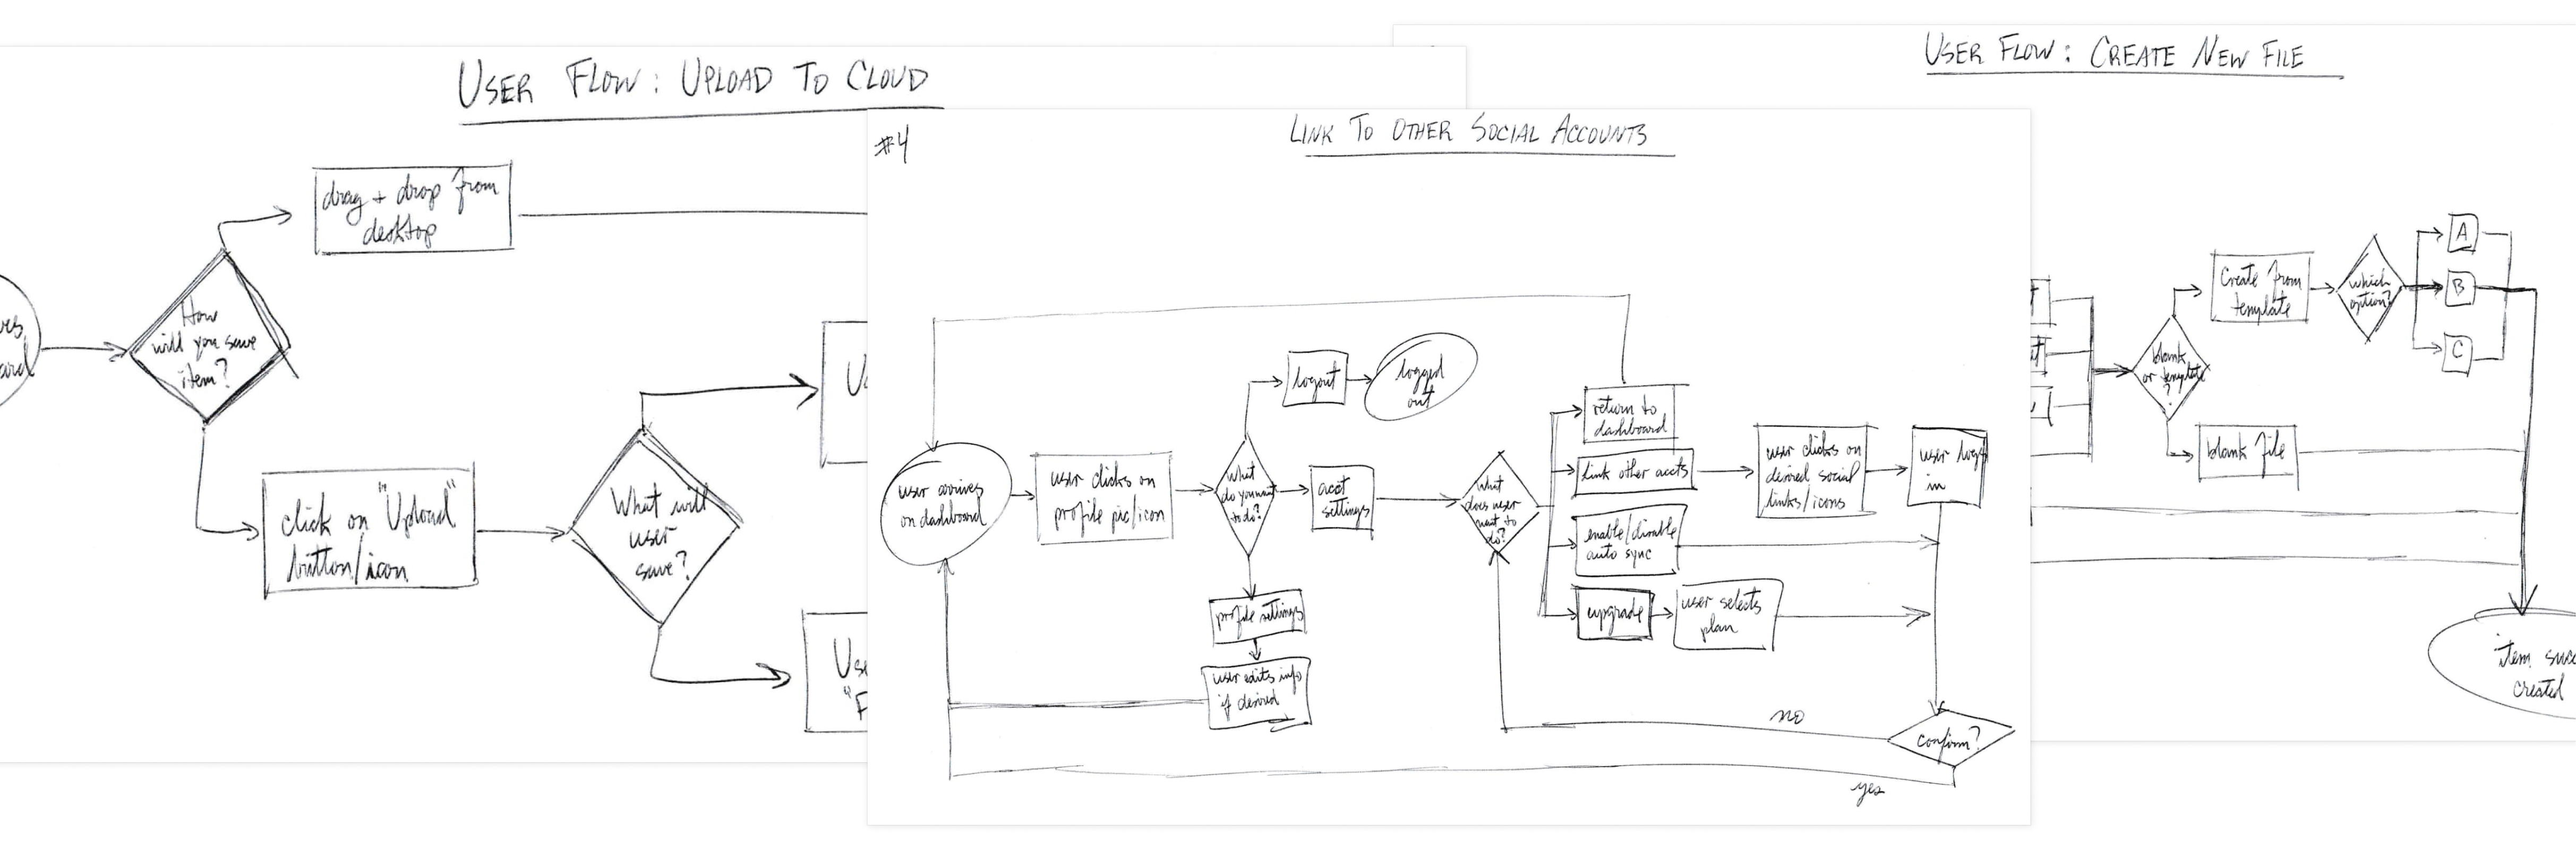 USER FLOW: UPLOAD TO CLOUD
drag + drop from
desktop
How
will you save
item?
click on "Upload"
button/icon
What will
user
save?
#4
LINK TO OTHER SOCIAL ACCOUNTS
user arrives
on dashboard
user clicks on
profile pic/icon
what
do you want
to do?
logout
logged
out
acct
settings
profile settings
user edits info
if desired
what
does user
want to
do?
return to
dashboard
link other accts
user clicks on
desired social
links/icons
user logs
in
enable/disable
auto sync
upgrade
user selects
plan
confirm?
no
yes
USER FLOW: CREATE NEW FILE
blank
or template
?
Create from
template
which
option?
A
B
C
blank file
item
created